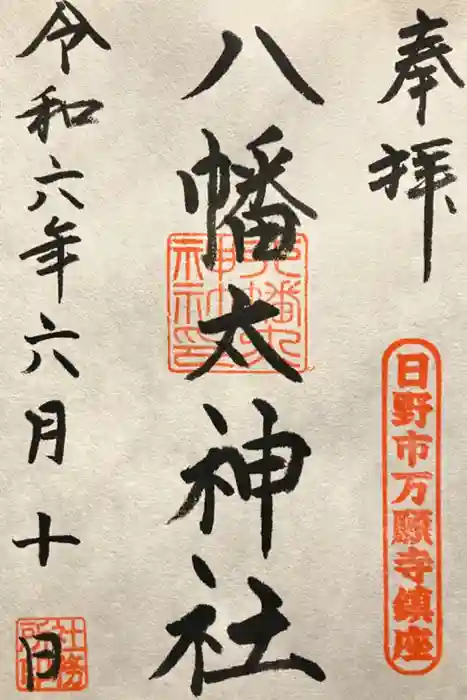 奉拝
日野市万願寺鎮座
八幡太神社
八幡太神社印
令和六年六月十日
社務所印